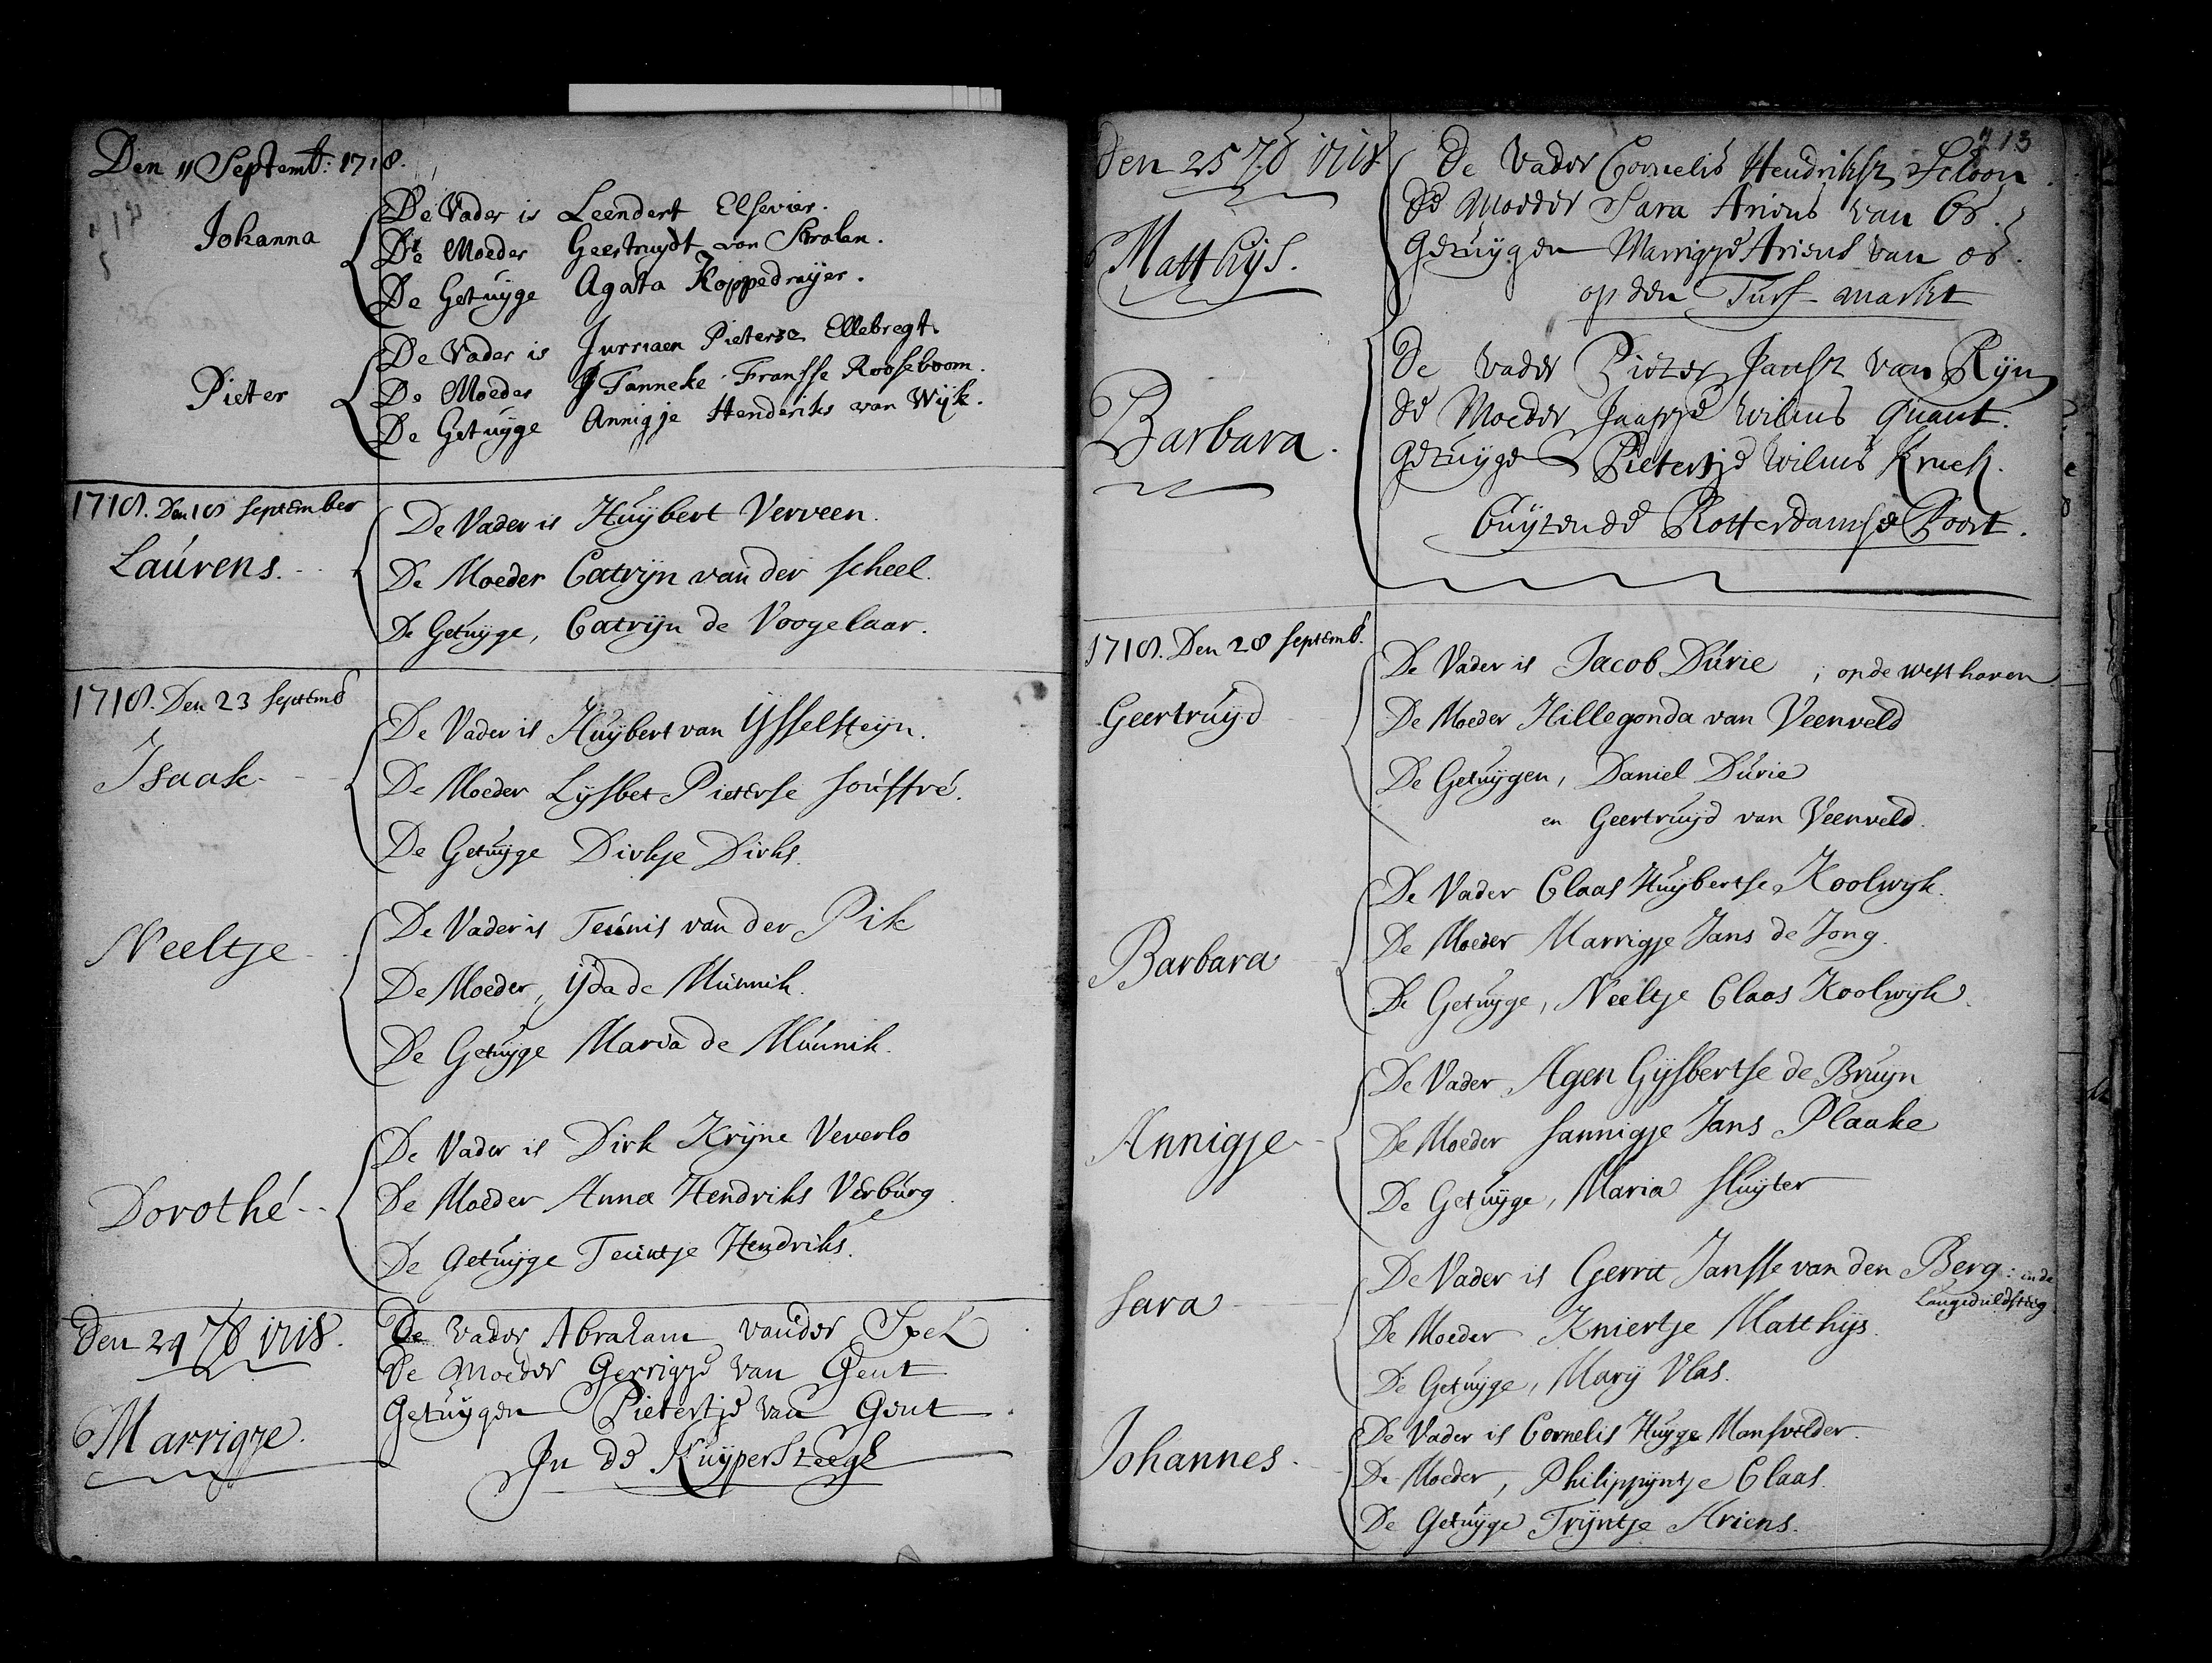 Den 11 Septemb: 1718.
Johanna
De Vader is Leendert Elsevier.
De Moeder Geertruydt van Stralen.
De Getuyge Agata Koppedrayer.
Pieter
De Vader is Jurriaen Pieterse Ellebregt.
De Moeder Tanneke Fransse Rooseboom.
De Getuyge Annigje Henderiks van Wijk.
1718. Den 18 September
Laurens.
De Vader is Huybert Verveen.
De Moeder Catrijn van der scheel.
De Getuyge, Catrijn de Voogelaar.
1718. Den 23 Septemb
Isaak
De Vader is Huybert van IJsselsteijn.
De Moeder Lysbet Pieterse souffré.
De Getuyge Dirkje Dirks.
Neeltje
De Vader is Teunis van der Pik
De Moeder, ijda de Munnik.
De Getuyge Maria de Munnik.
Dorothé
De Vader is Dirk Krijne Ververlo
De Moeder Anna Hendriks Verburg
De Getuyge Teuntje Hendriks.
Den 24 7b 1718.
Marrigje.
De Vader Abraham vander Spek
De Moeder Gerrigje van Gent
Getuygen Pietertje van Gent
In de Kuypersteegh
13
Den 25 7b 1718
Matthijs.
De Vader Cornelis Hendriksz Schoon
de Moeder Sara Ariens van Os.
Getuygen Marrigje Ariens van os.
op den Turf markt
Barbara.
De Vader Pieter Jansz van Rijn
de Moeder Jaapje Wilms quant.
Getuyge Pietertje Wilms Kruck.
buyten de Rotterdamse Poort.
1718. Den 28 Septemb.
Geertruyd
De Vader is Jacob Durie ; op de westhaven
De Moeder Hillegonda van Veenveld
De Getuygen, Daniel Durie
en Geertruyd van Veenveld.
Barbara
De Vader Claas Huybertse Koolwyk.
De Moeder Marrigje Jans de Jong.
De Getuyge, Neeltje Claas Koolwyk.
Annigje
De Vader Agen Gysbertse de Bruyn
De Moeder Jannigje Jans Plaake
De Getuyge, Maria sluyter
Sara
De Vader is Gerrit Jansse van den Berg: in de
Langeduldsteeg
De Moeder Kniertje Matthijs.
De Getuyge, Marij Vlas.
Johannes.
De Vader is Cornelis Huyge Mansvelder.
De Moeder, Philippyntje Claas.
De Getuyge Tryntje Ariens.